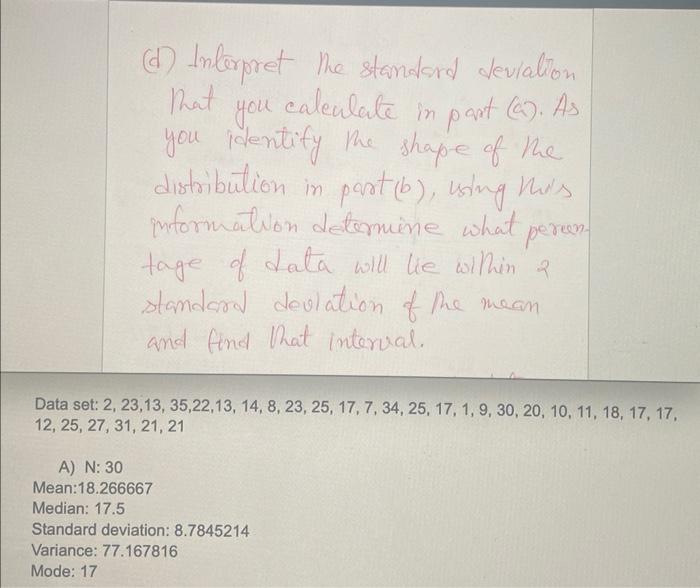 (d) Interpret the standard deviation
that you calculate in part (a). As
you identify the shape of the
distribution in part (b), using this
information determine what percen-
tage of data will lie within 2
standard deviation of the mean
and find that interval.
Data set: 2, 23,13, 35,22,13, 14, 8, 23, 25, 17, 7, 34, 25, 17, 1, 9, 30, 20, 10, 11, 18, 17, 17,
12, 25, 27, 31, 21, 21
A) N: 30
Mean:18.266667
Median: 17.5
Standard deviation: 8.7845214
Variance: 77.167816
Mode: 17